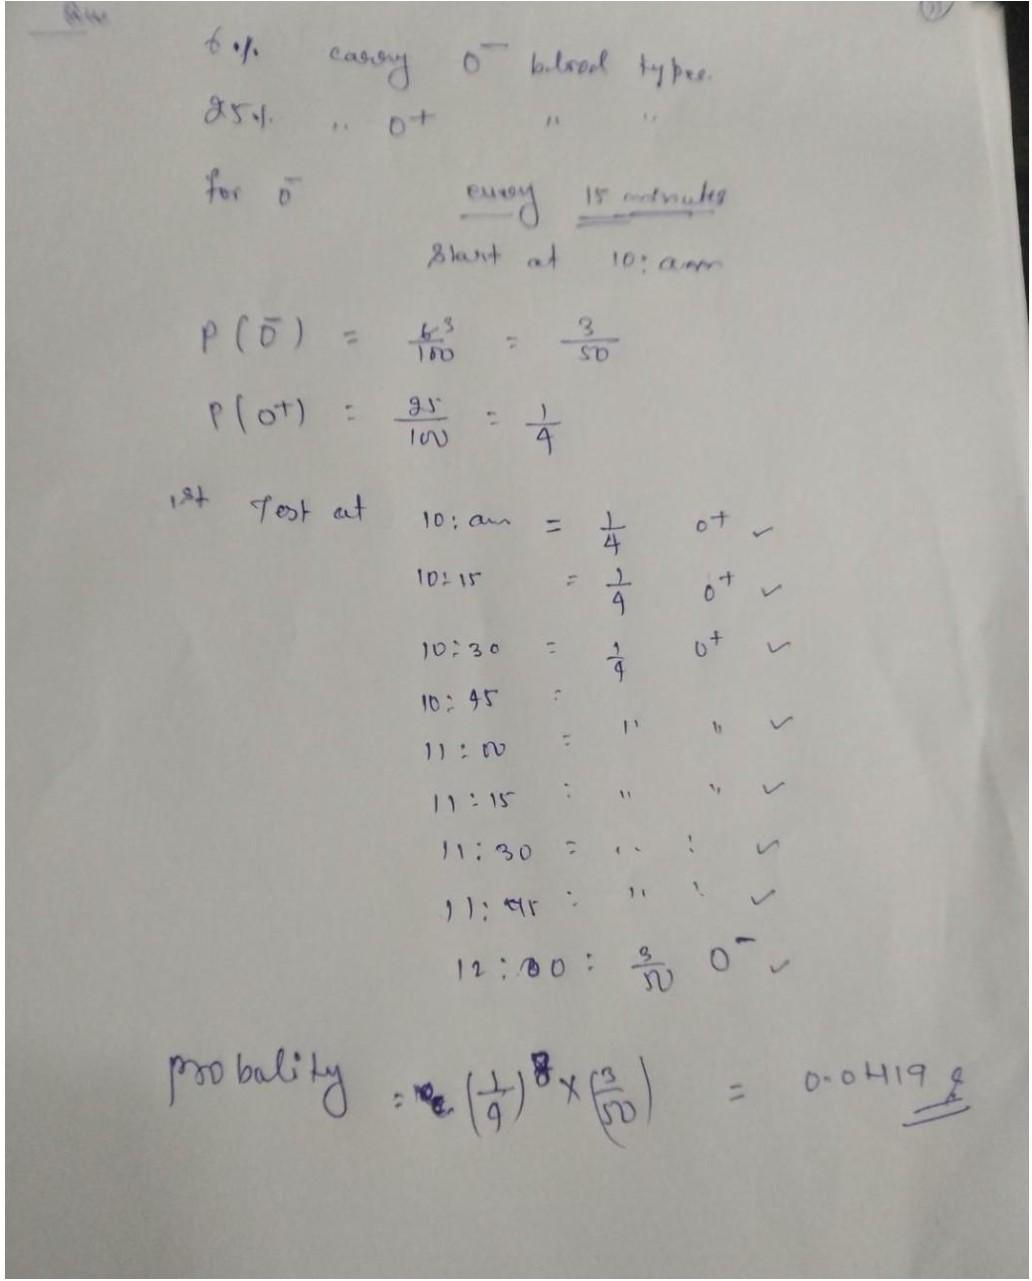 6 % carry O⁻ blood types.
25 % " O+ " "
for O⁻ every 15 minutes
Start at 10: am
P(O⁻) = 6 3 / 100 = 3/50
P(O+) = 25/100 = 1/4
1st Test at 10: am = 1/4 O+ ✓
10:15 = 1/4 O+ ✓
10:30 = 1/4 O+ ✓
10:45 =
11:00 = " " ✓
11:15 : " " ✓
11:30 = " : ✓
11:45 : " : ✓
12:00 : 3/50 O⁻ ✓
probality = (1/4)⁸ × (3/50) = 0.0419